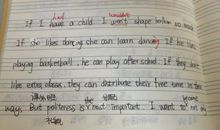 had wouldn't
If I have a child I want shape him
If she likes dancing she can learn dancing If he likes
playing basketball, he can play after school. If they don't
like extra classes, they can distribute their free time in their
the
way. But politeness is important. I want to not only